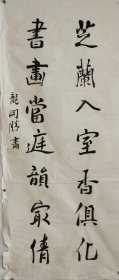 芝蘭入室香俱化
書畫當庭韻最倩
龍
書